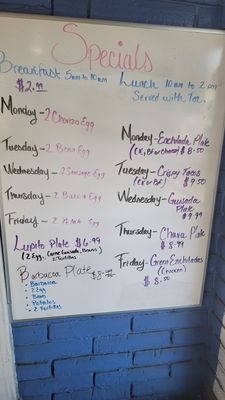 Specials
Breakfast 5am to 10am
$2.99
Monday - 2 Chorizo Egg
Tuesday - 2 Bean Egg
Wednesday - 2 Sausage Egg
Thursday - 2 Bacon Egg
Friday - 2 Potato Egg
Lupita Plate $6.99
(2 Egg, Carne Guisada, Beans)
2 Tortillas
Barbacoa Plate $8.99
• Barbacoa
• 2 Egg
• Beans
• Potatoes
• 2 Tortillas
Lunch 10am to 2pm
Served with Tea.
Monday - Enchilada Plate
$8.50
Tuesday - Crispy Tacos
$9.50
Wednesday - Guisada
Plate
$9.99
Thursday - Chara Plate
$8.99
Friday - Green Enchiladas
(Chicken)
$8.50